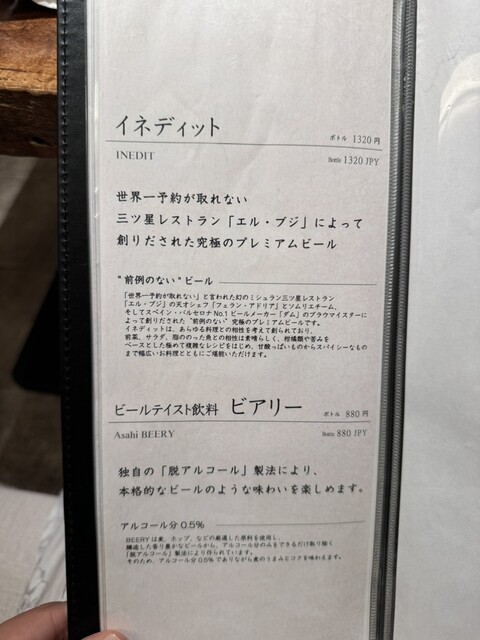 イネディット
ボトル 1320円
INEDIT
Bottle 1320 JPY
世界一予約が取れない
三ツ星レストラン「エル・ブジ」によって
創りだされた究極のプレミアムビール
"前例のない"ビール
「世界一予約が取れない」と言われた幻のミシュラン三ツ星レストラン
「エル・ブジ」の天才シェフ「フェラン・アドリア」とソムリエチーム、
そしてスペイン・バルセロナ No.1 ビールメーカー「ダム」のブラウマイスターに
よって創りだされた "前例のない" 究極のプレミアムビールです。
イネディットは、あらゆる料理との相性を考えて創られており、
前菜、サラダ、脂ののった魚との相性は素晴らしく、柑橘類や苦みを
ベースとした極めて複雑なレシピをはじめ、甘酸っぱいものからスパイシーなもの
まで幅広いお料理とともにご堪能いただけます。
ビールテイスト飲料 ビアリー
ボトル 880円
Asahi BEERY
Bottle 880 JPY
独自の「脱アルコール」製法により、
本格的なビールのような味わいを楽しめます。
アルコール分 0.5%
BEERYは麦、ホップ、などの厳選した原料を使用し、
醸造した香り豊かなビールから、アルコール分のみをできるだけ取り除く
「脱アルコール」製法により作られています。
そのため、アルコール分0.5%でありながら麦のうまみとコクを味わえます。